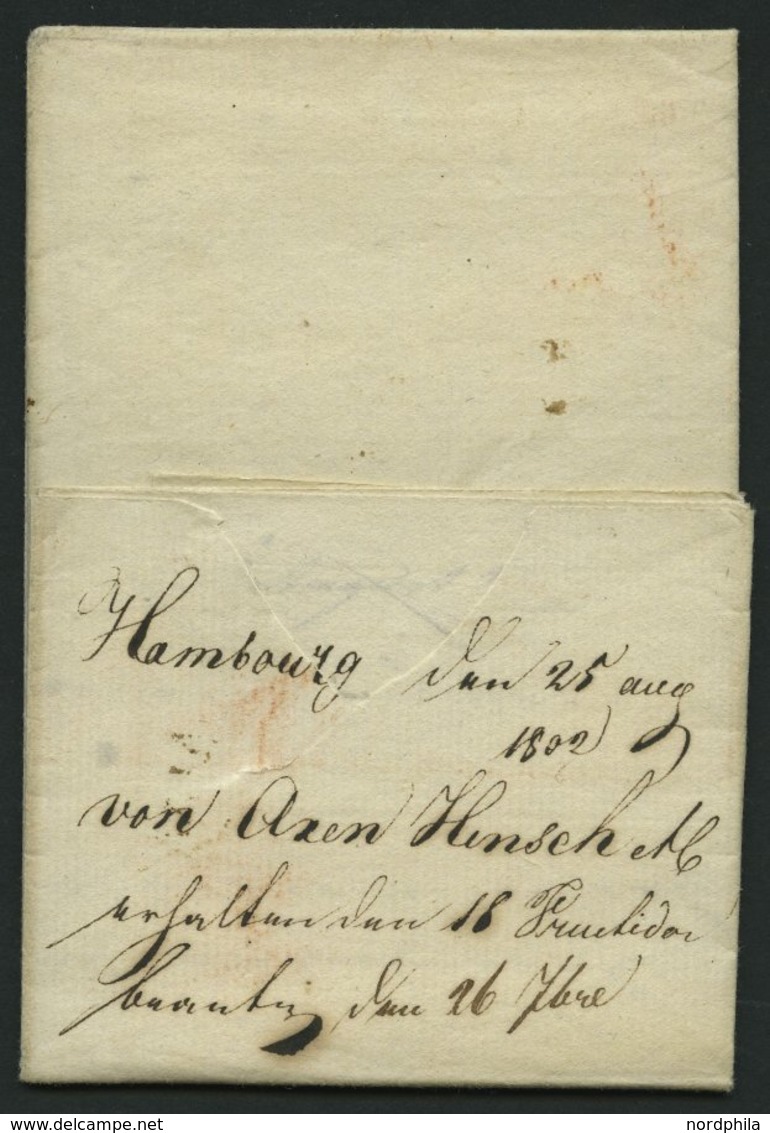 Hambourg den 25 aug
1802
von Axen Hinsch & C
erhalten den 18 Fructidor
beantw den 26 7bre
nordphila